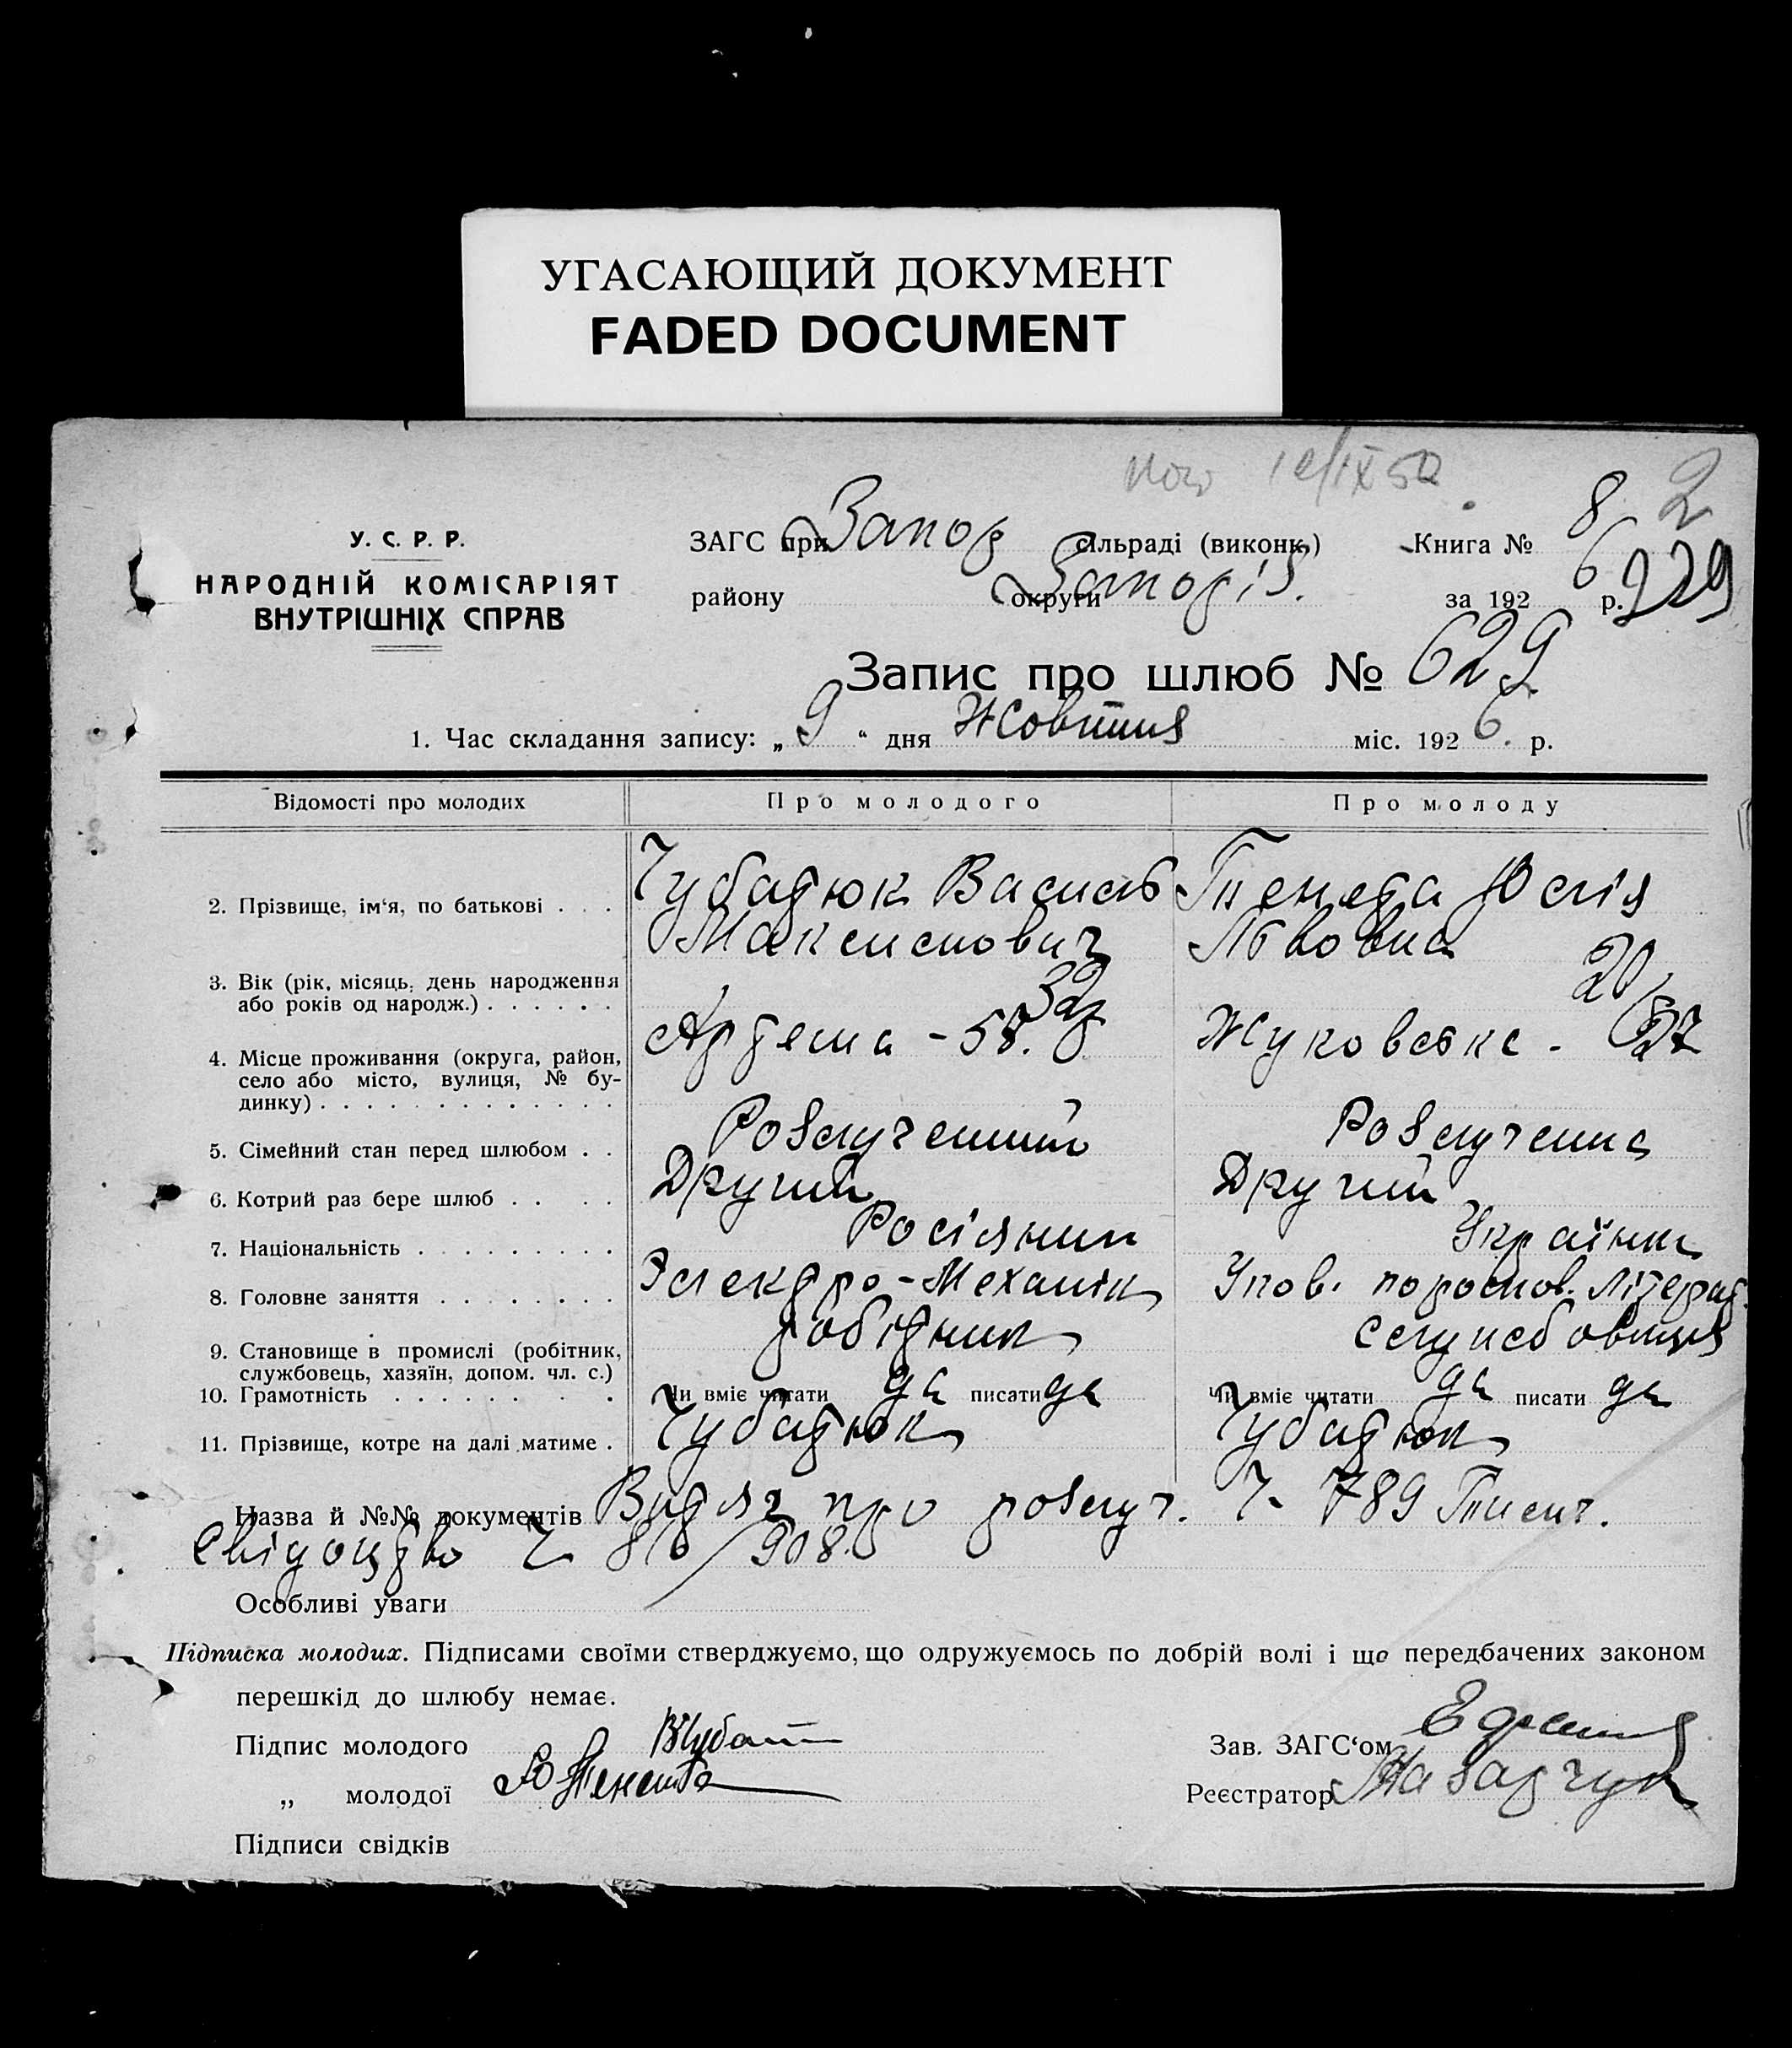 УГАСАЮЩИЙ ДОКУМЕНТ
FADED DOCUMENT
8 2
У. С. Р. Р.
НАРОДНІЙ КОМІСАРІЯТ
ВНУТРІШНІХ СПРАВ
ЗАГС при Запор сільраді (виконк.) Книга №
району округи Запоріз. за 192 6 р. 229
Запис про шлюб № 629
1. Час складання запису: „ 9 “ дня Жовтня міс. 192 6. р.
Відомості про молодих Про молодого Про молоду
2. Прізвище, ім‘я, по батькові . . . Чубатюк Василь Тенета Юлія
Максимович Львовна
3. Вік (рік, місяць, день народження
або років од народж.) . . . . . . 32 20
4. Місце проживання (округа, район,
село або місто, вулиця, № бу-
динку) . . . . . . . . . . . . . Артема - 58. Жуковська - 27
5. Сімейний стан перед шлюбом . . Розлучений Розлучена
6. Котрий раз бере шлюб . . . . Другий Другий
7. Національність . . . . . . . . . Росіянин Українка
8. Головне заняття . . . . . . . . Електро-Механік Упов. Літерат.
9. Становище в промислі (робітник,
службовець, хазяїн, допом. чл. с.) робітник службовиця
10. Грамотність . . . . . . . . Чи вміє читати да писати да Чи вміє читати да писати да
11. Прізвище, котре на далі матиме . Чубатюк Чубатюк
Назва й №№ документів Витяг про розлуч. Ч. 789
Свідоцтво Ч 908
Особливі уваги
Підписка молодих. Підписами своїми стверджуємо, що одружуємось по добрій волі і що передбачених законом
перешкід до шлюбу немає.
Підпис молодого ВЧубат
Зав. ЗАГС‘ом
„ молодої Ю Тенета
Реєстратор Назарчук
Підписи свідків